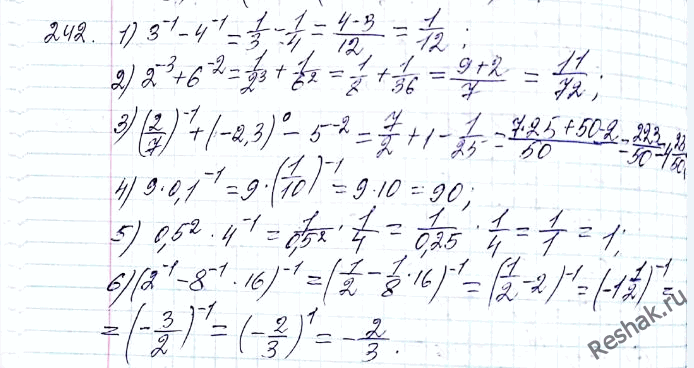 242. 1) 3⁻¹ - 4⁻¹ = 1/3 - 1/4 = (4-3)/12 = 1/12;
2) 2⁻³ + 6⁻² = 1/2³ + 1/6² = 1/8 + 1/36 = (9+2)/7 = 11/72;
3) (2/7)⁻¹ + (-2,3)⁰ - 5⁻² = 7/2 + 1 - 1/25 = (7·25+50-2)/50 = 223/50 = 4 23/50;
4) 9·0,1⁻¹ = 9·(1/10)⁻¹ = 9·10 = 90;
5) 0,5² · 4⁻¹ = 1/0,5² · 1/4 = 1/0,25 · 1/4 = 1/1 = 1;
6) (2⁻¹ - 8⁻¹ · 16)⁻¹ = (1/2 - 1/8 · 16)⁻¹ = (1/2 - 2)⁻¹ = (-1 1/2)⁻¹ =
= (-3/2)⁻¹ = (-2/3)¹ = -2/3.
Reshak.ru